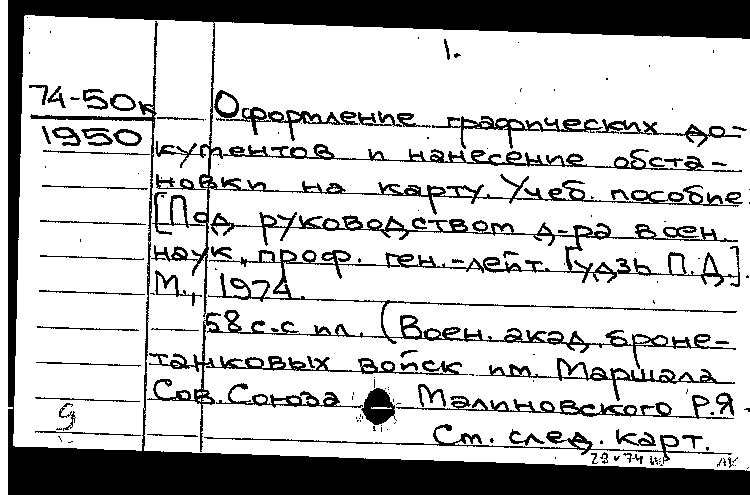 1.
74-50к
1950
Оформление графических до-
кументов и нанесение обста-
новки на карту. Учеб. пособие.
[Под руководством д-ра воен.
наук, проф. ген.-лейт. Гудзь П.Д.].
М., 1974.
58 с. с ил. (Воен. акад. броне-
танковых войск им. Маршала
Сов. Союза Малиновского Р.Я.
См. след. карт.